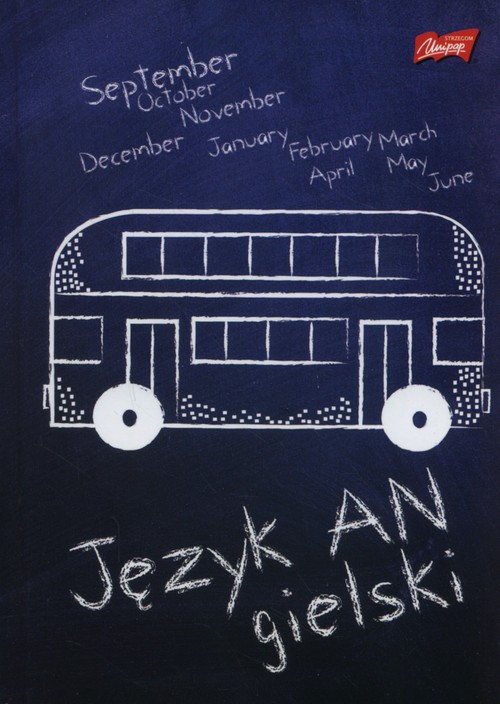 STRZEGOM
Unipap
September
October
November
December January February March
April May June
Język AN
gielski